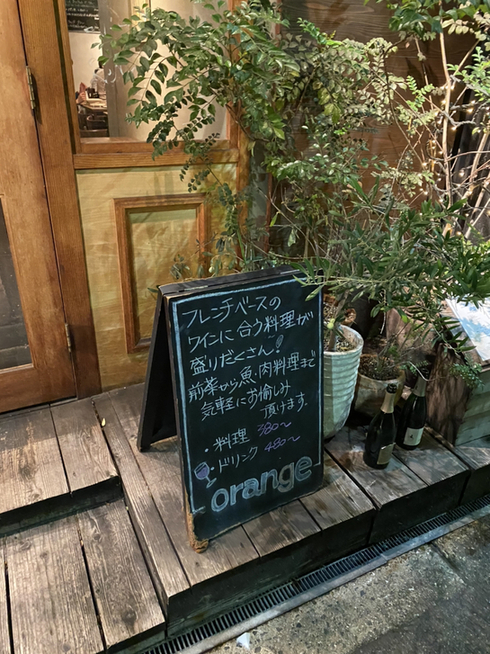 フレンチベースの
ワインに合う料理が
盛りだくさん!
前菜から魚、肉料理まで
気軽にお愉しみ
頂けます。
・料理 380〜
・ドリンク 480〜
orange